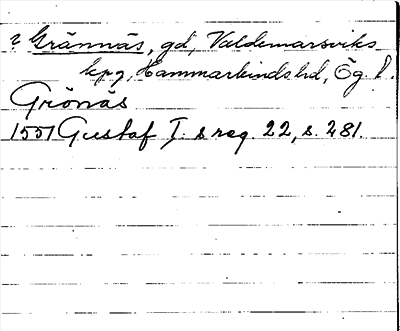 ? Grännäs, gd, Valdemarsviks
kpg, Hammarkinds hd, Ög. l.
Grönäs
1551 Gustaf I. s reg. 22, s. 281.